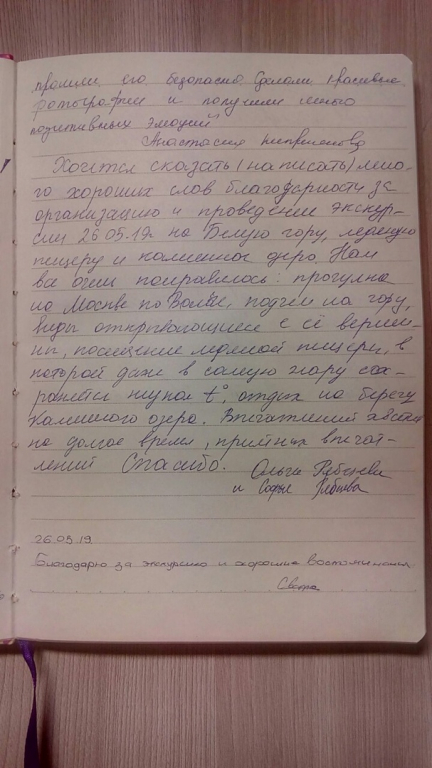 прошли его безопасно. Сделали красивые
фотографии и получили много
позитивных эмоций
Анастасия
Хочется сказать (написать) мно-
го хороших слов благодарности за
организацию и проведение экскур-
сии 26.05.19 на Белую гору, ледяную
пещеру и каменное озеро. Нам
всё очень понравилось: прогулка
по
виды открывающиеся с её верши-
ны, посещение пещеры, в
которой даже в самую жару сох-
раняется t°, отдых на берегу
каменного озера. Впечатлений
на долгое время, приятных впечат-
лений Спасибо. Ольга
и Софья
26.05.19.
Благодарю за экскурсию и хорошие воспоминания.
Света